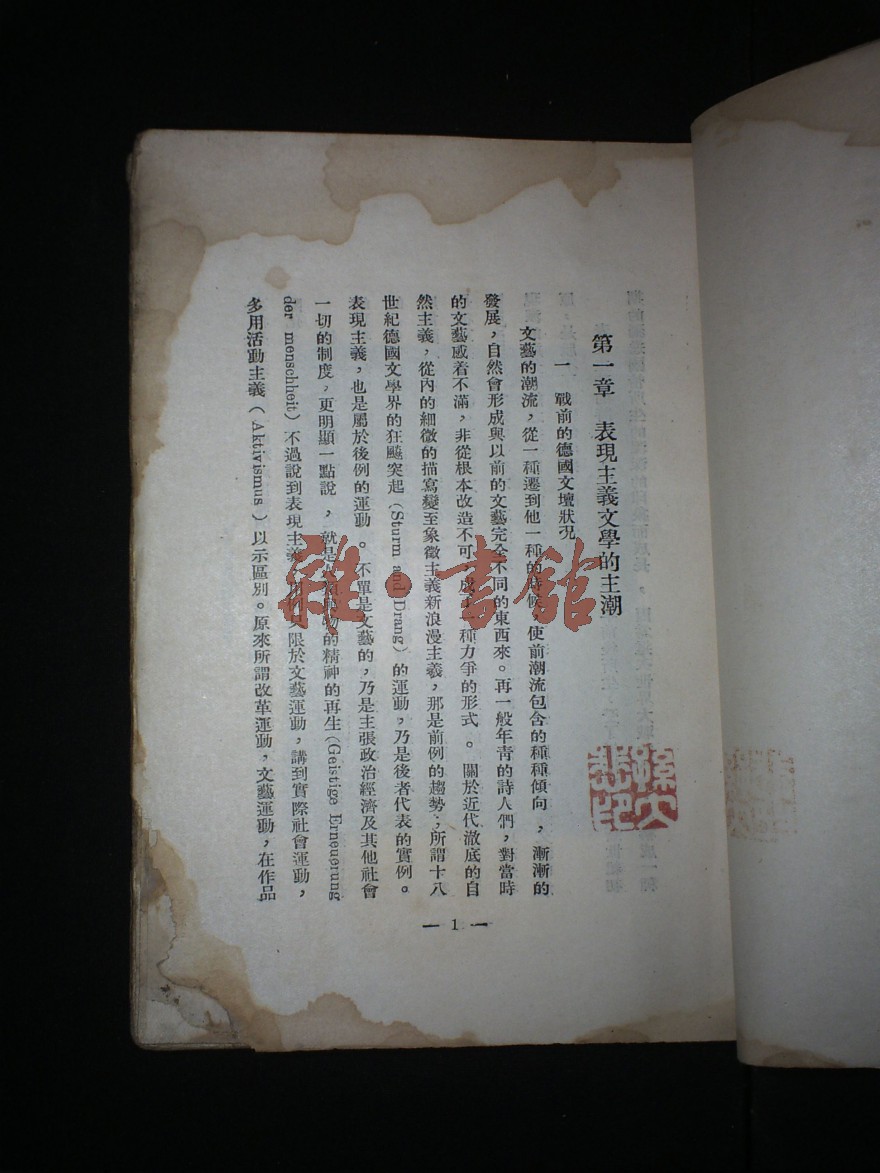 第一章　表現主義文學的主潮
一　戰前的德國文壇狀況
文藝的潮流，從一種遷到他一種的時候，使前潮流包含的種種傾向，漸漸的
發展，自然會形成與以前的文藝完全不同的東西來。再一般年靑的詩人們，對當時
的文藝感着不滿，非從根本改造不可，成了一種力爭的形式。關於近代澈底的自
然主義，從內的細微的描寫變至象徵主義新浪漫主義，那是前例的趨勢；所謂十八
世紀德國文學界的狂飈突起（Sturm and Drang）的運動，乃是後者代表的實例。
表現主義，也是屬於後例的運動。不單是文藝的，乃是主張政治經濟及其他社會
一切的制度，更明顯一點說，就是的精神的再生（Geistige Erneuerung
der menschheit）不過說到表現主義，限於文藝運動，講到實際社會運動，
多用活動主義（Aktivismus）以示區別。原來所謂改革運動，文藝運動，在作品
— 1 —
雜·書館